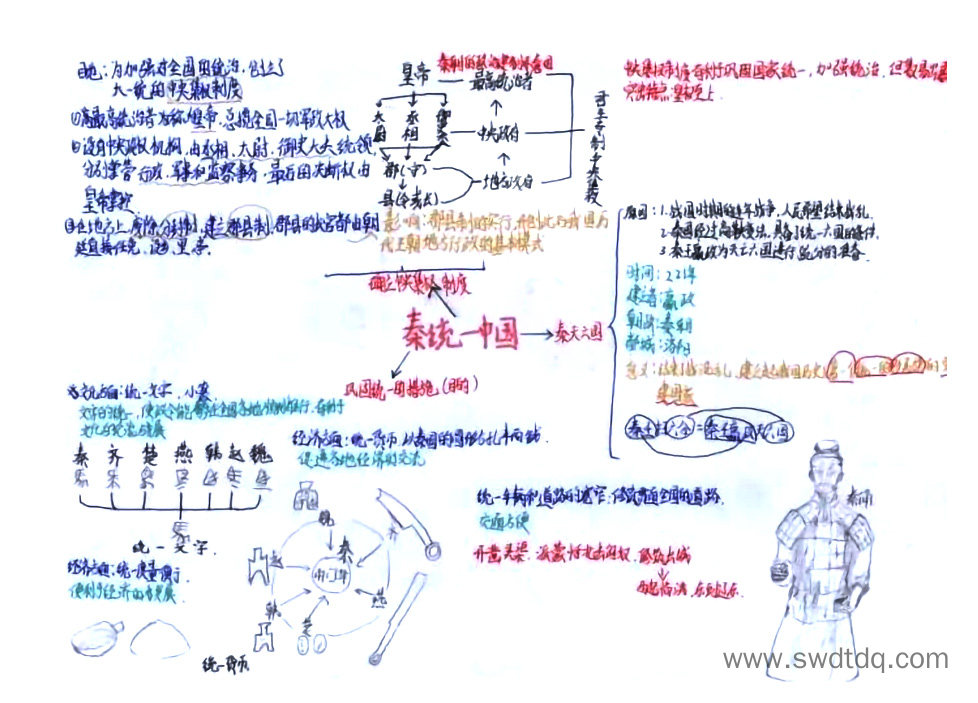 目的:为加强对全国的统治,创立了
大一统的中央集权制度
①最高统治者为称皇帝,总揽全国一切军政大权
②设中央政权机构,由丞相、太尉、御史大夫统领
分别掌管行政、军事和监察事务,最后的决断权由
皇帝掌控
③在地方上,废除分封制,建立郡县制,郡县的长官都由朝
廷直接任免
皇帝
太尉
丞相
御史
郡(守)
县(令或长)
最高统治者
中央政府
地方政府
影响:郡县制的实行,开创此后我国历
代王朝地方行政的基本模式
确立中央集权制度
秦统一中国
秦灭六国
巩固统一的措施(目的)
中央集权制度有利于巩固国家统一,加强统治,但
原因:1.战国时期的连年战争,人民希望结束战乱
2.秦国经过商鞅变法,具备了统一六国的条件
3.秦王嬴政为灭亡六国进行充分的准备
时间:221年
建立者:嬴政
朝政:秦朝
都城:
意义:结束
文化方面:统一文字,小篆
文字的统一,使政令能够在全国各地顺利推行,有利于
文化的交流与发展
秦 齐 楚 燕 韩 赵 魏
统一文字
经济方面:统一度量衡
便利了经济的发展
经济方面:统一货币,以秦国的圆形方孔半两钱
促进各地经济的交流
魏
赵
秦
齐
韩
燕
楚
统一货币
统一车辆和道路的宽窄,修筑贯通全国的道路
交通方便
开凿灵渠,派蒙恬北击匈奴,修筑长城
西起临洮,东到辽东
秦俑
www.swdtdq.com